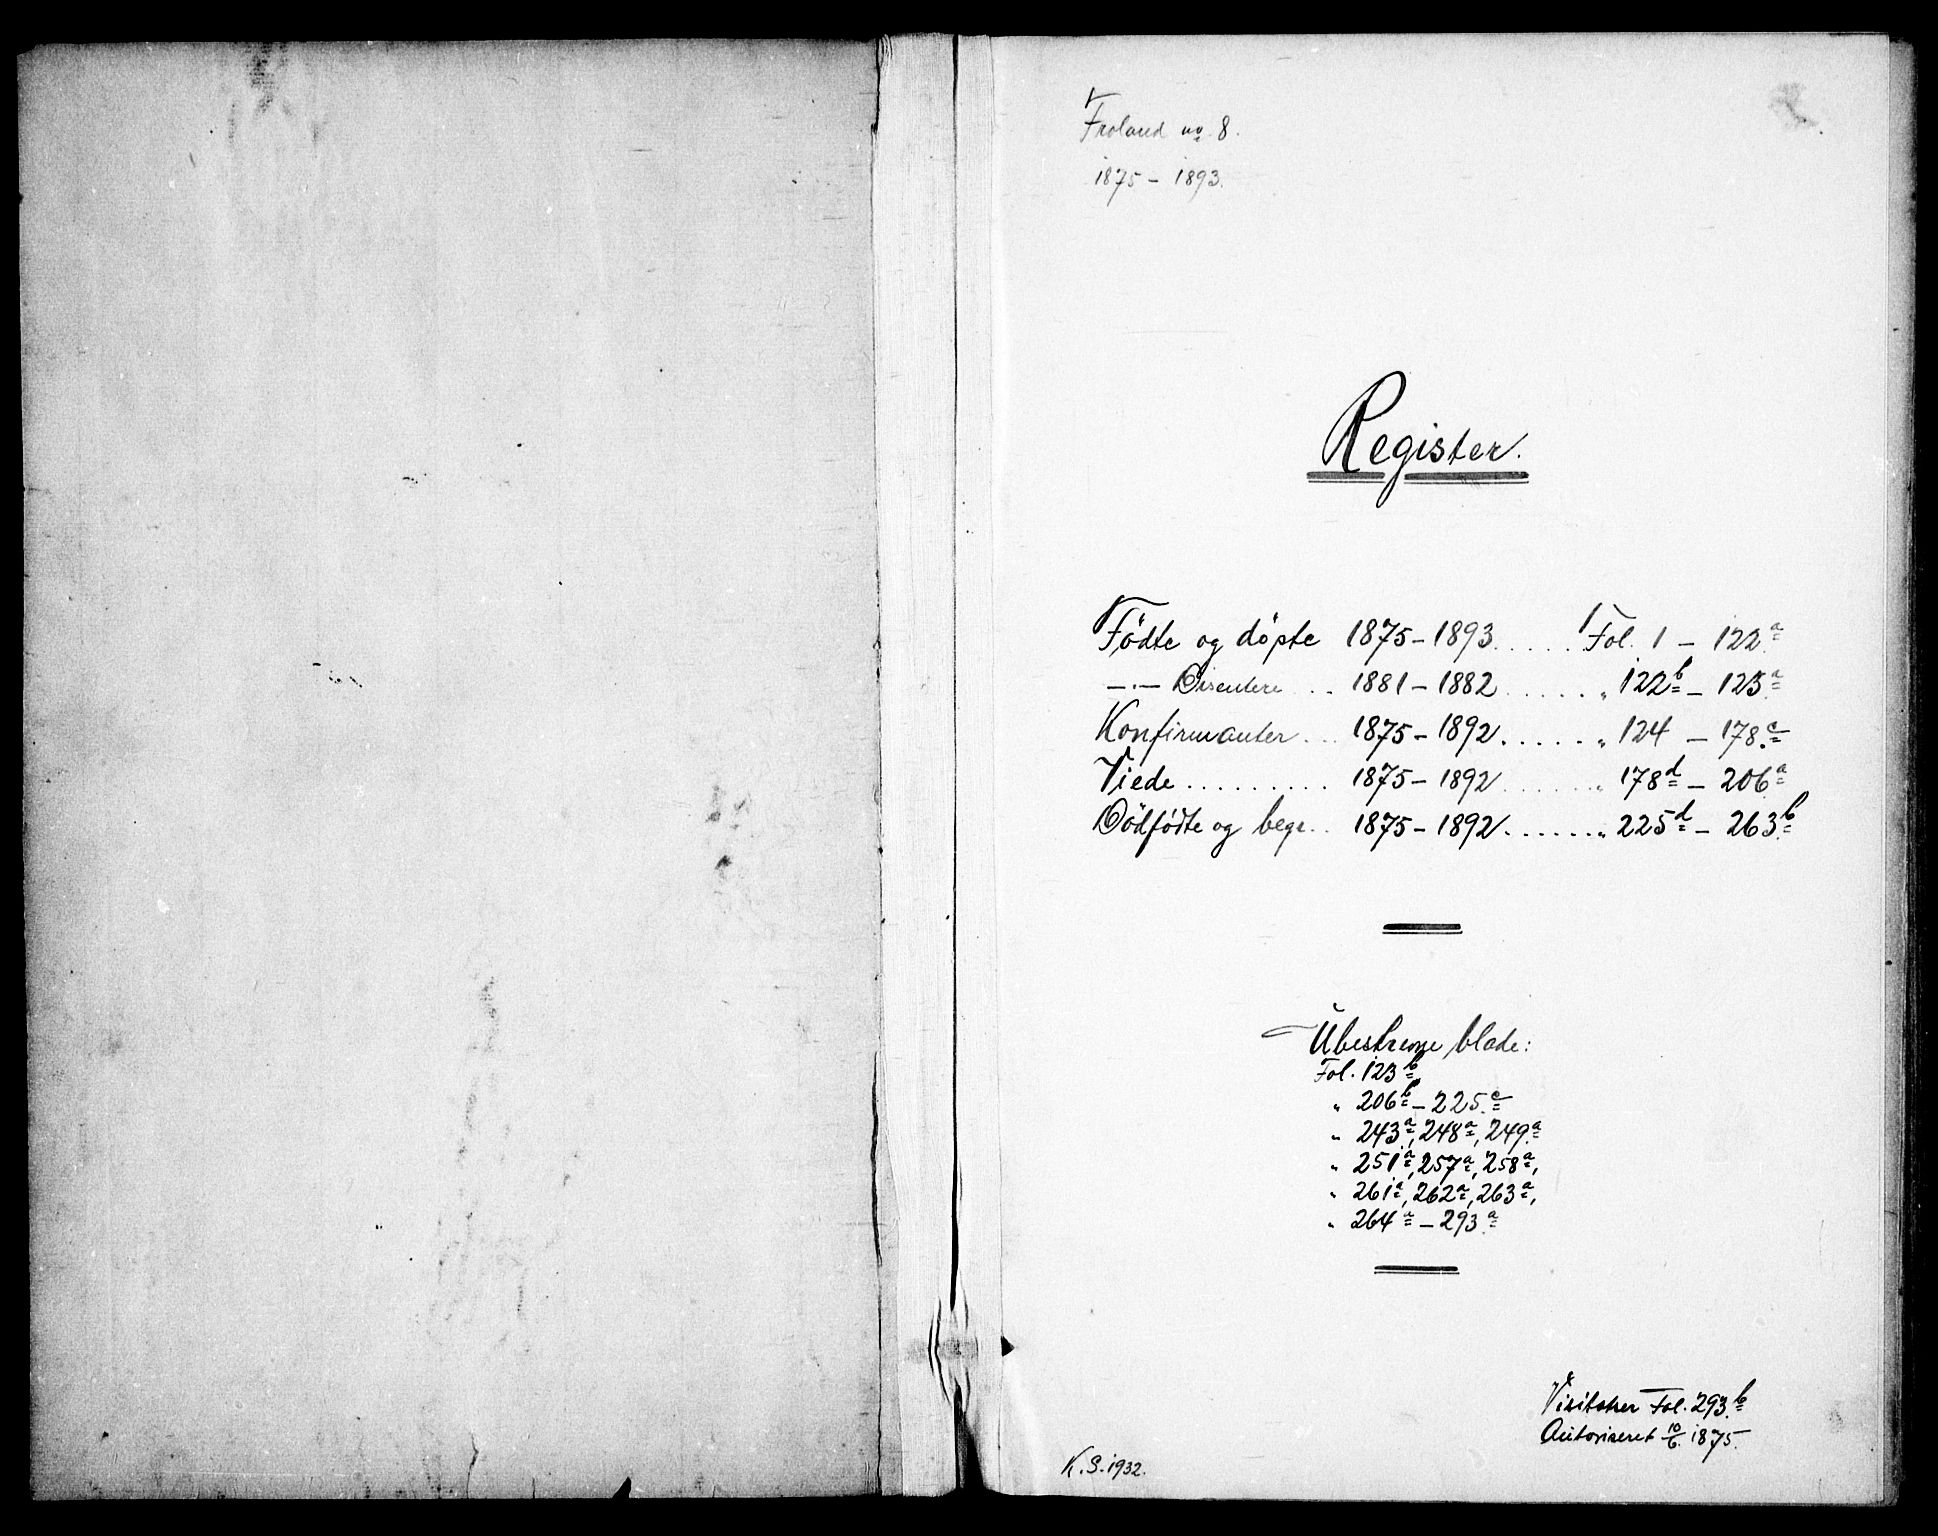 Froland no 8.
1875 – 1893.
Register.
Fødte og døpte 1875 – 1893 ..... Fol. 1 – 122a
–·– Disentere ... 1881 – 1882 ...... „ 122b – 123a
Konfirmanter ... 1875 – 1892 ...... „ 124 – 178c
Viede ......... 1875 – 1892 ...... „ 178d – 206a
Dödfødte og begr. .. 1875 – 1892 ...... „ 225d – 263b
Ubeskrevne blade:
Fol. 123b
„ 206b – 225c
„ 243a, 248a, 249a
„ 251a, 257a, 258a,
„ 261a, 262a, 263a,
„ 264a – 293a
Visitatser Fol. 293b
Autoriseret 10/6 1875.
K.S. 1932.